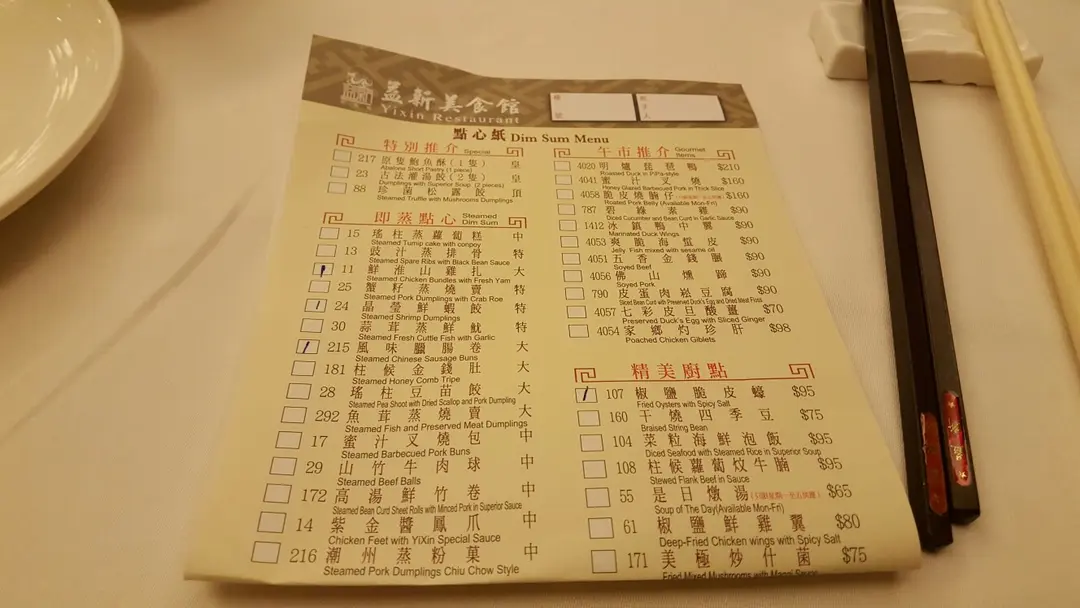 益新美食館
Yixin Restaurant
點心紙 Dim Sum Menu
特別推介 Special
217 原隻鮑魚酥(1隻) 皇
Abalone Short Pastry (1 piece)
23 古法灌湯餃(2隻) 皇
Dumplings with Superior Soup (2 pieces)
88 珍菌松露餃 頂
Steamed Truffle with Mushrooms Dumplings
即蒸點心 Steamed Dim Sum
15 瑤柱蒸蘿蔔糕 中
Steamed Turnip cake with conpoy
13 豉汁蒸排骨 特
Steamed Spare Ribs with Black Bean Sauce
11 鮮淮山雞扎 大
Steamed Chicken Bundles with Fresh Yam
25 蟹籽蒸燒賣 特
Steamed Pork Dumplings with Crab Roe
24 晶瑩鮮蝦餃 特
Steamed Shrimp Dumplings
30 蒜茸蒸鮮魷 特
Steamed Fresh Cuttle Fish with Garlic
215 風味臘腸卷 大
Steamed Chinese Sausage Buns
181 柱候金錢肚 大
Steamed Honey Comb Tripe
28 瑤柱豆苗餃 大
Steamed Pea Shoot with Dried Scallop and Pork Dumpling
292 魚茸蒸燒賣 大
Steamed Fish and Preserved Meat Dumplings
17 蜜汁叉燒包 中
Steamed Barbecued Pork Buns
29 山竹牛肉球 中
Steamed Beef Balls
172 高湯鮮竹卷 中
Steamed Bean Curd Sheet Rolls with Minced Pork in Superior Sauce
14 紫金醬鳳爪 中
Chicken Feet with YiXin Special Sauce
216 潮州蒸粉菓 中
Steamed Pork Dumplings Chiu Chow Style
午市推介 Gourmet Items
4020 明爐琵琶鴨 $210
Roasted Duck in PiPa-style
4041 蜜汁叉燒 $160
Honey Glazed Barbecued Pork in Thick Slice
4058 脆皮燒腩仔 $160
Roasted Pork Belly (Available Mon-Fri)
787 碧綠素雞 $90
Diced Cucumber and Bean Curd in Garlic Sauce
1412 冰鎮鴨中翼 $90
Marinated Duck Wings
4053 爽脆海蜇皮 $90
Jelly Fish mixed with sesame oil
4051 五香金錢𦟌 $90
Soyed Beef
4056 佛山燻蹄 $90
Soyed Pork
790 皮蛋肉崧豆腐 $90
Sliced Bean Curd with Preserved Duck's Egg and Dried Meat Floss
4057 七彩皮旦酸薑 $70
Preserved Duck's Egg with Sliced Ginger
4054 家鄉灼珍肝 $98
Poached Chicken Giblets
精美廚點
107 椒鹽脆皮蠔 $95
Fried Oysters with Spicy Salt
160 干燒四季豆 $75
Braised String Bean
104 菜粒海鮮泡飯 $95
Diced Seafood with Steamed Rice in Superior Soup
108 柱候蘿蔔炆牛腩 $95
Stewed Flank Beef in Sauce
55 是日燉湯 $65
Soup of The Day(Available Mon-Fri)
61 椒鹽鮮雞翼 $80
Deep-Fried Chicken wings with Spicy Salt
171 美極炒什菌 $75
Fried Mixed Mushrooms with Maggi Sauce